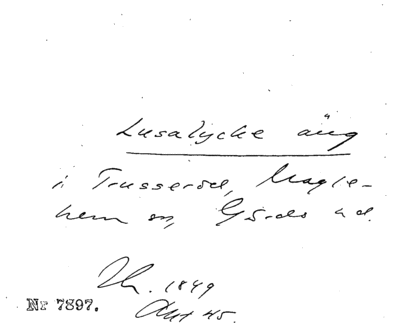 Lusalycke äng
i Trusseröd, Magle-
hem sn, Gärds hd.
Lh. 1849
Akt 45.
Nr 7897.